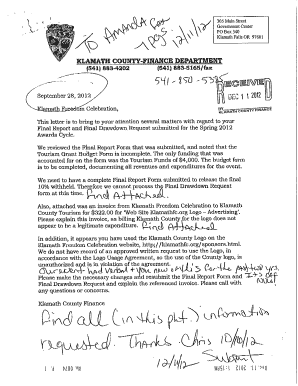 305 Main Street
Government Center
PO Box 340
Klamath Falls OR 97601
To Amanda Cox
TPOS 12/11/12
KLAMATH COUNTY-FINANCE DEPARTMENT
(541) 883-4202 (541) 883-5165/fax
541-850-5385
RECEIVED
DEC 11 2012
KLAMATH COUNTY FINANCE
September 28, 2012
Klamath Freedom Celebration,
This letter is to bring to your attention several matters with regard to your
Final Report and Final Drawdown Request submitted for the Spring 2012
Awards Cycle.
We reviewed the Final Report Form that was submitted, and noted that the
Tourism Grant Budget Form is incomplete. The only funding that was
accounted for on the form was the Tourism Funds of $4,000. The budget form
is to be completed, documenting all revenues and expenditures for the event.
We need to have a complete Final Report Form submitted to release the final
10% withheld. Therefore we cannot process the Final Drawdown Request
form at this time. Find Attached.
Also, attached was an invoice from Klamath Freedom Celebration to Klamath
County Tourism for $322.00 for "Web Site Klamath4th.org Logo – Advertising".
Please explain this invoice, as billing Klamath County for the logo does not
appear to be a legitimate expenditure. Find Attached
In addition, it appears you have used the Klamath County Logo on the
Klamath Freedom Celebration website, http://klamath4th.org/sponsors.html.
We do not have record of an approved written request to use the Logo, in
accordance with the Logo Usage Agreement, so the use of the County logo, is
unauthorized and is in violation of the agreement.
Please make the necessary changes and resubmit the Final Report Form and
Final Drawdown Request and explain the referenced invoice. Please call with
any questions or concerns.
Klamath County Finance
Find all (in this pkt) information
requested. Thanks Chris 12/10/12
12/11/12